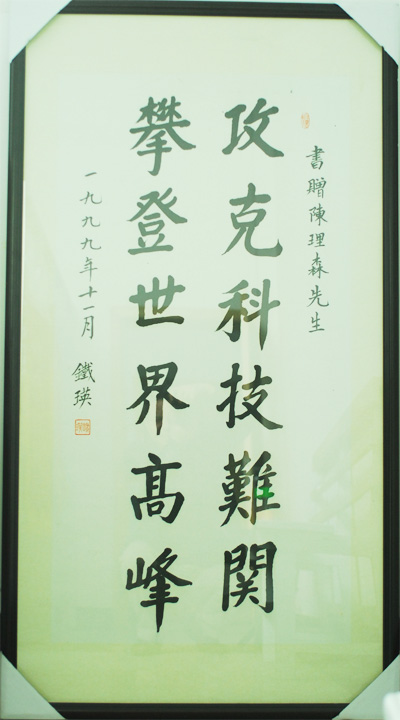 書贈陳理森先生
攻克科技難関
攀登世界髙峰
一九九九年十一月 鐵瑛